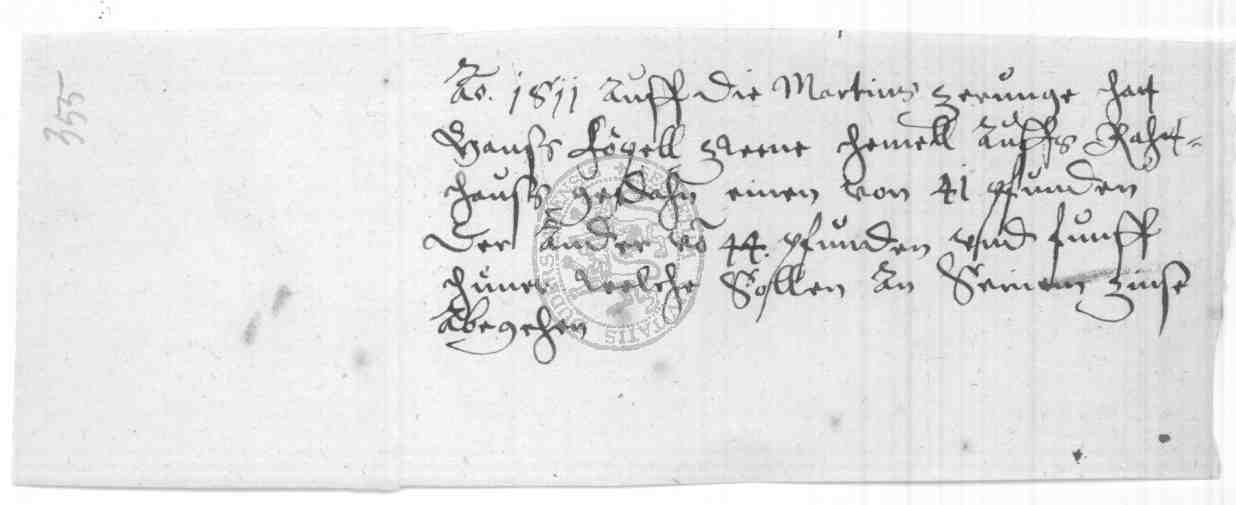 355
Ao. 1611 Auff die Martins zerunge hatt
Hanss Kögell zwene hemell Auffs Raht-
hauss gedahn einen von 41 pfunden
Der Ander vō 44. pfunden vnd funff
hüner welche Sollen An Seinem zinse
Abegehen